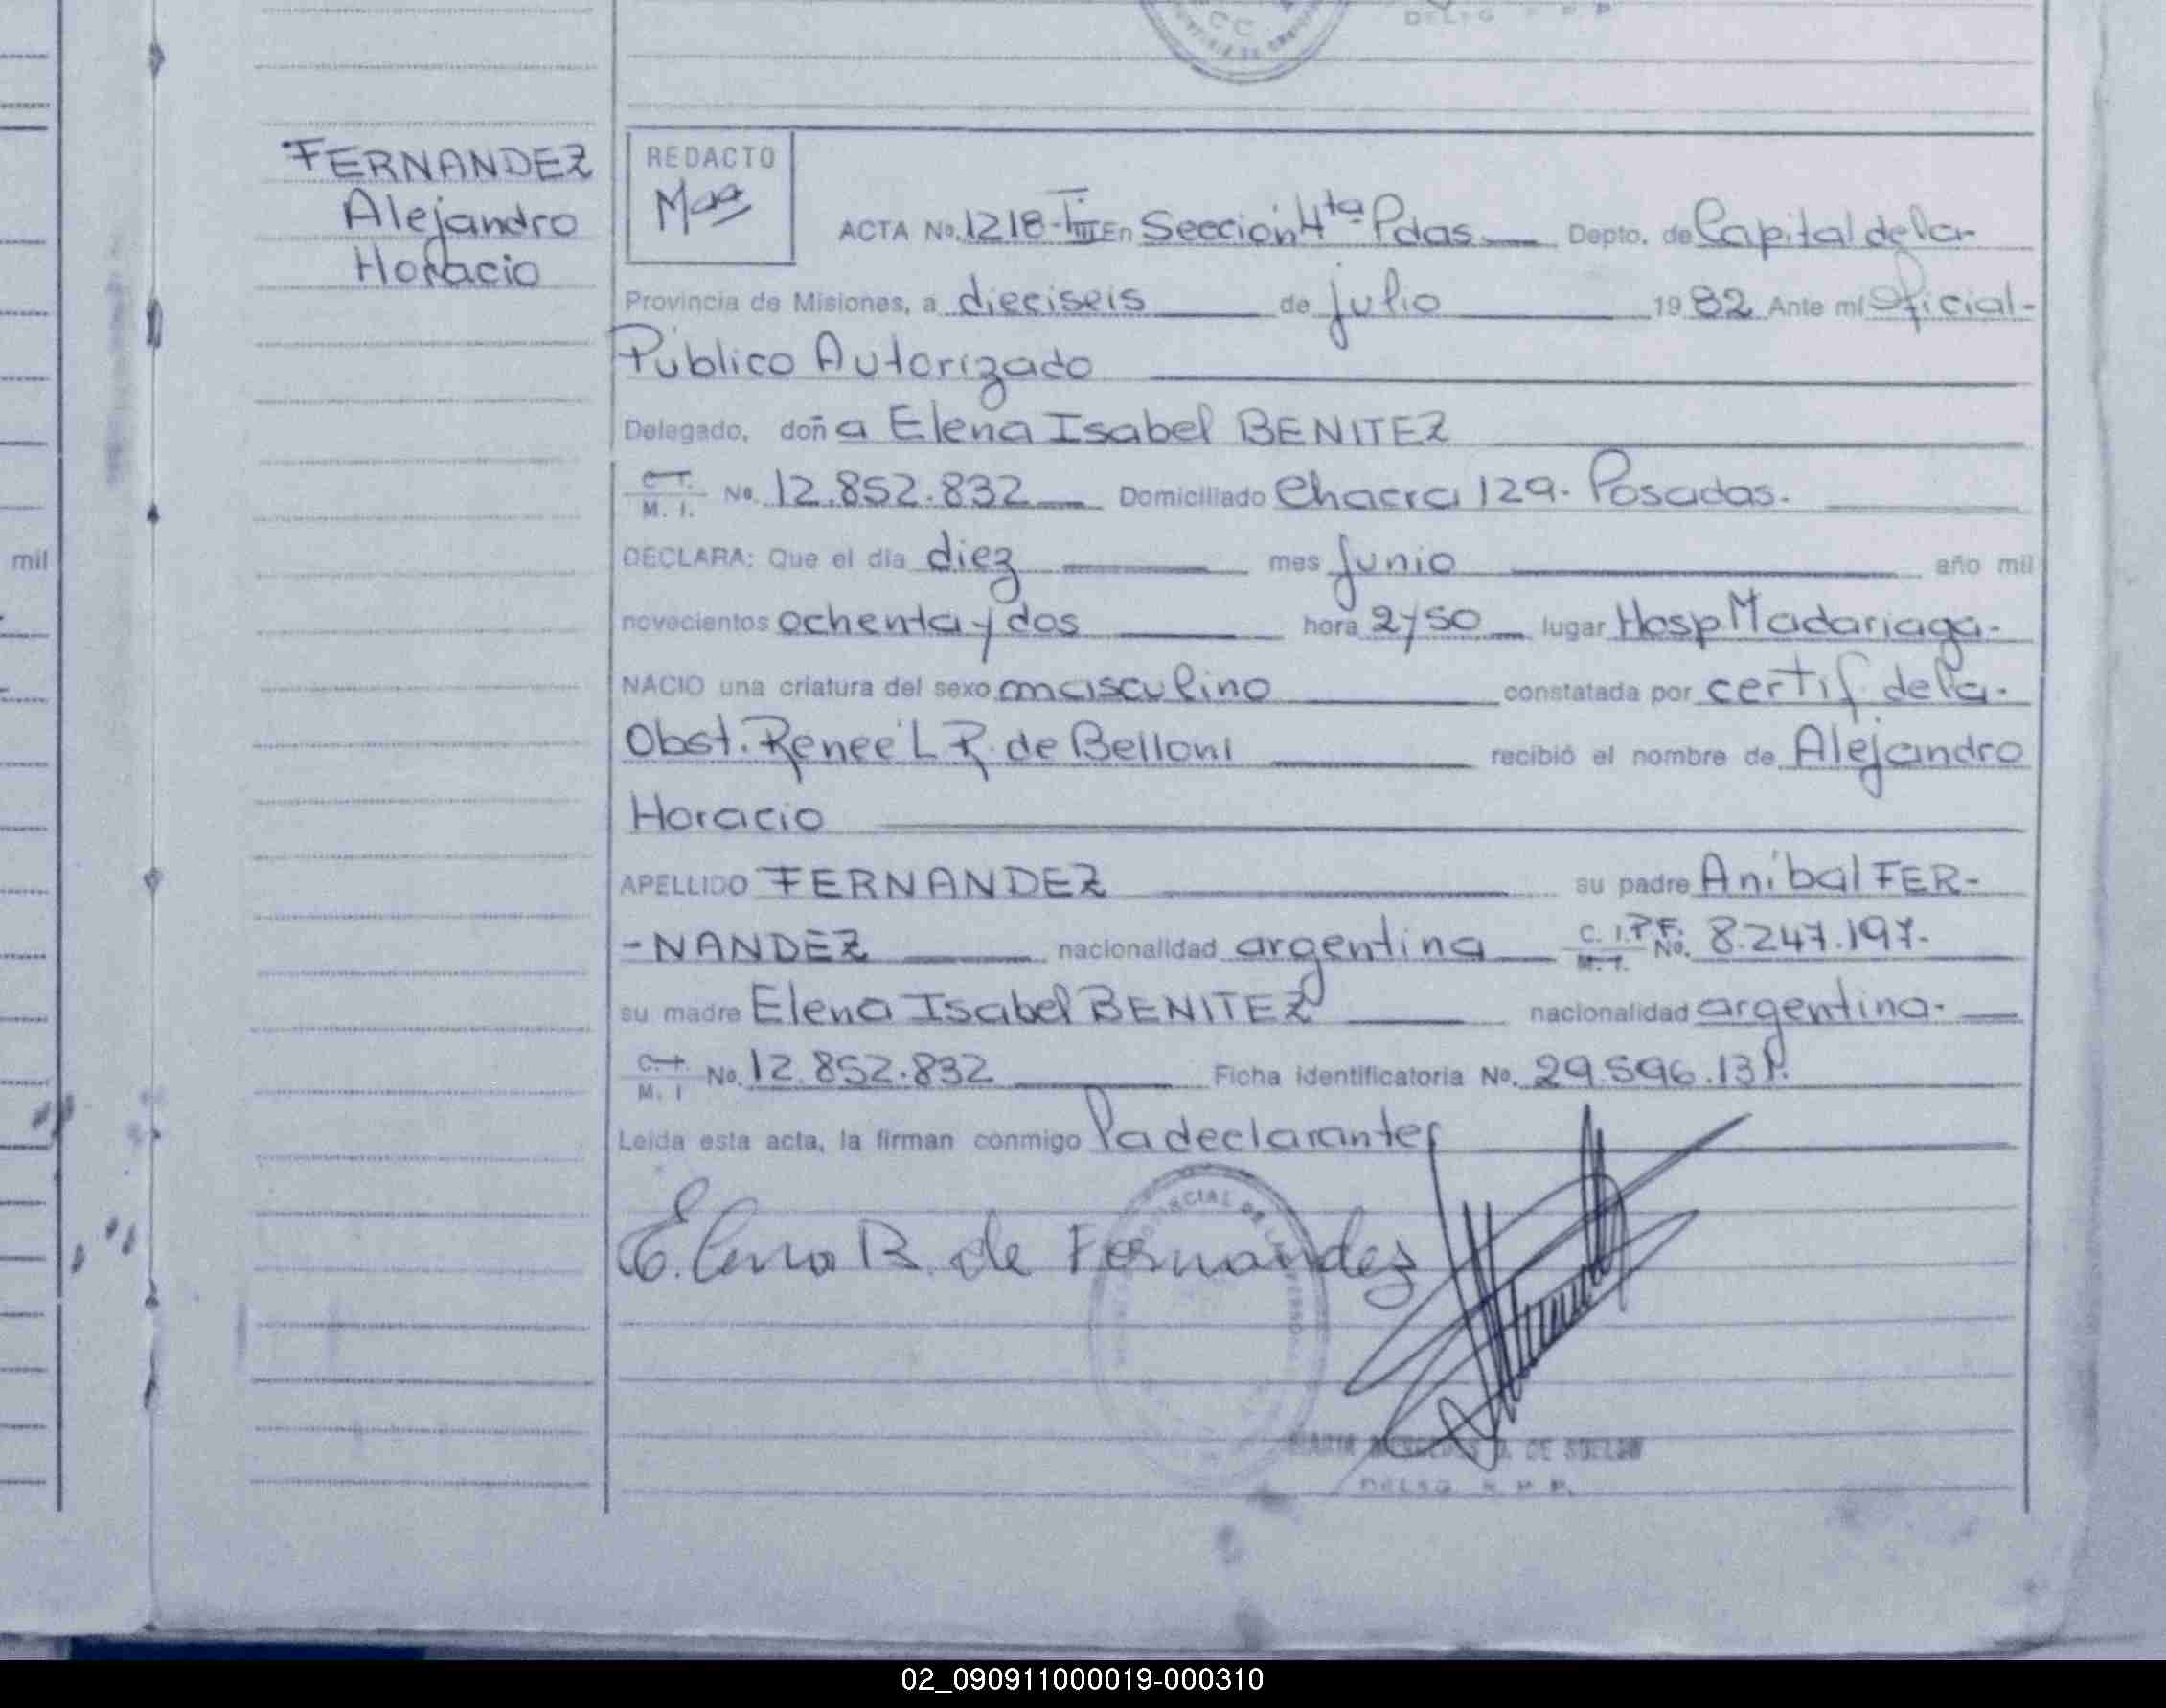 DELEG R P P
FERNANDEZ
Alejandro
Horacio
REDACTO
ACTA No. 1218-T III En Sección 4ta Pdas. Depto. de Capital de la
Provincia de Misiones, a dieciseis de julio 1982 Ante mí Oficial-
Público Autorizado
Delegado, doña Elena Isabel BENITEZ
C. I.
M. I. No. 12.852.832 Domiciliado Chacra 129. Posadas.
mil
DECLARA: Que el día diez mes junio año mil
novecientos ochenta y dos hora 2y50 lugar Hosp Madariaga.
NACIO una criatura del sexo masculino constatada por certif. de la.
Obst. Reneé L R. de Belloni recibió el nombre de Alejandro
Horacio
APELLIDO FERNANDEZ su padre Aníbal FER-
-NANDEZ nacionalidad argentina C. I. P.F. No. 8.247.197.
M. I.
su madre Elena Isabel BENITEZ nacionalidad argentina.
C. I.
M. I No. 12.852.832 Ficha identificatoria No. 29.596.131.
Leída esta acta, la firman conmigo la declarante
Elena B. de Fernandez
DE
02_090911000019-000310